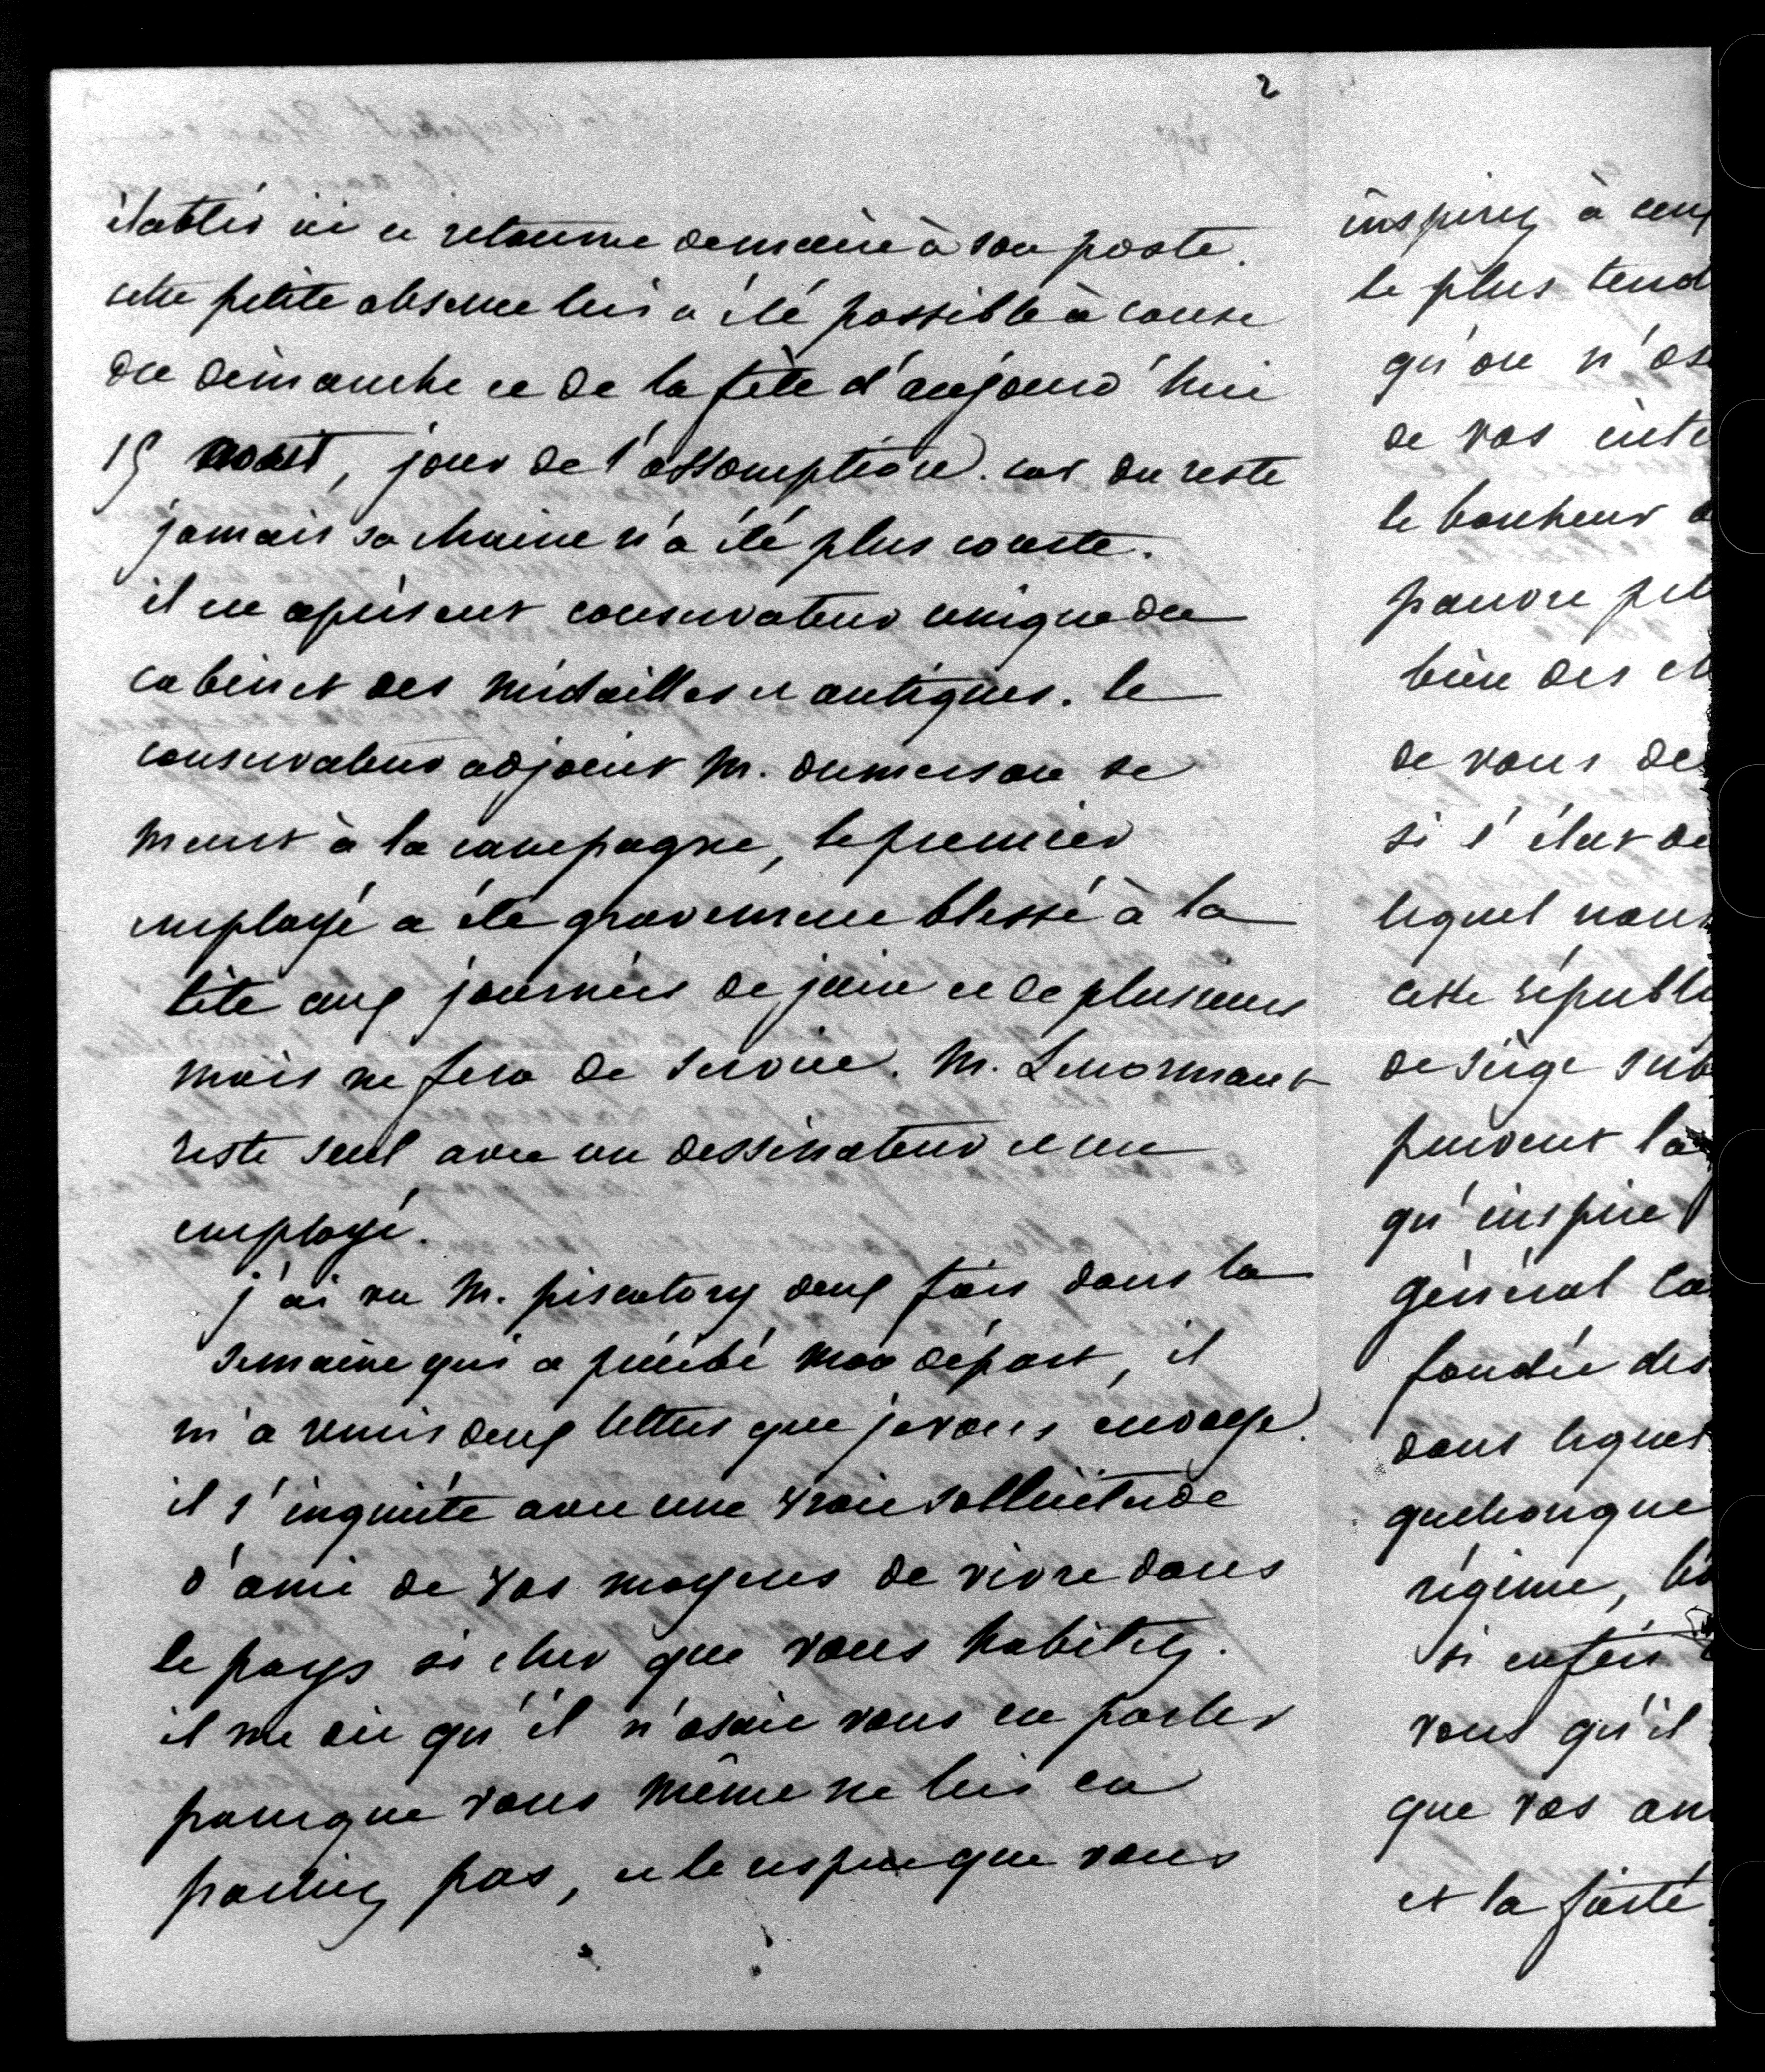 2
établir ici et retourne demain à son poste.
cette petite absence lui a été possible à cause
du dimanche et de la fête d'aujourd'hui
15 aoust, jour de l'assomption. car du reste
jamais sa chaine n'a été plus courte.
il est à présent conservateur unique du
cabinet des médailles et antiques. le
conservateur adjoint M. dumersan se
meurt à la campagne, le premier
employé a été gravement blessé à la
tête aux journées de juin et de plusieurs
mois ne fera de service. M. Lenormant
reste seul avec un dessinateur et un
employé.
j'ai vu M. piscatory deux fois dans la
semaine qui a précédé mon départ, il
m'a remis deux lettres que je vous envoye.
il s'inquiète avec une vraie sollicitude
d'ami de vos moyens de vivre dans
le pays si cher que vous habitez.
il me dit qu'il n'osait vous en parler
parceque vous même ne lui en
parliez pas, et le respect que vous
inspirez à ceux
le plus tend
qu'on n'ose
de vos inte
le bonheur d
pauvre pet
bien des ch
de vous de
si l'état de
lequel nous
cette républi
de siège sub
peuvent la
qu'inspire
général ca
fondée des
dans lequel
quelconque
régime,
si enfin
vous qu'il
que vos am
et la fierté